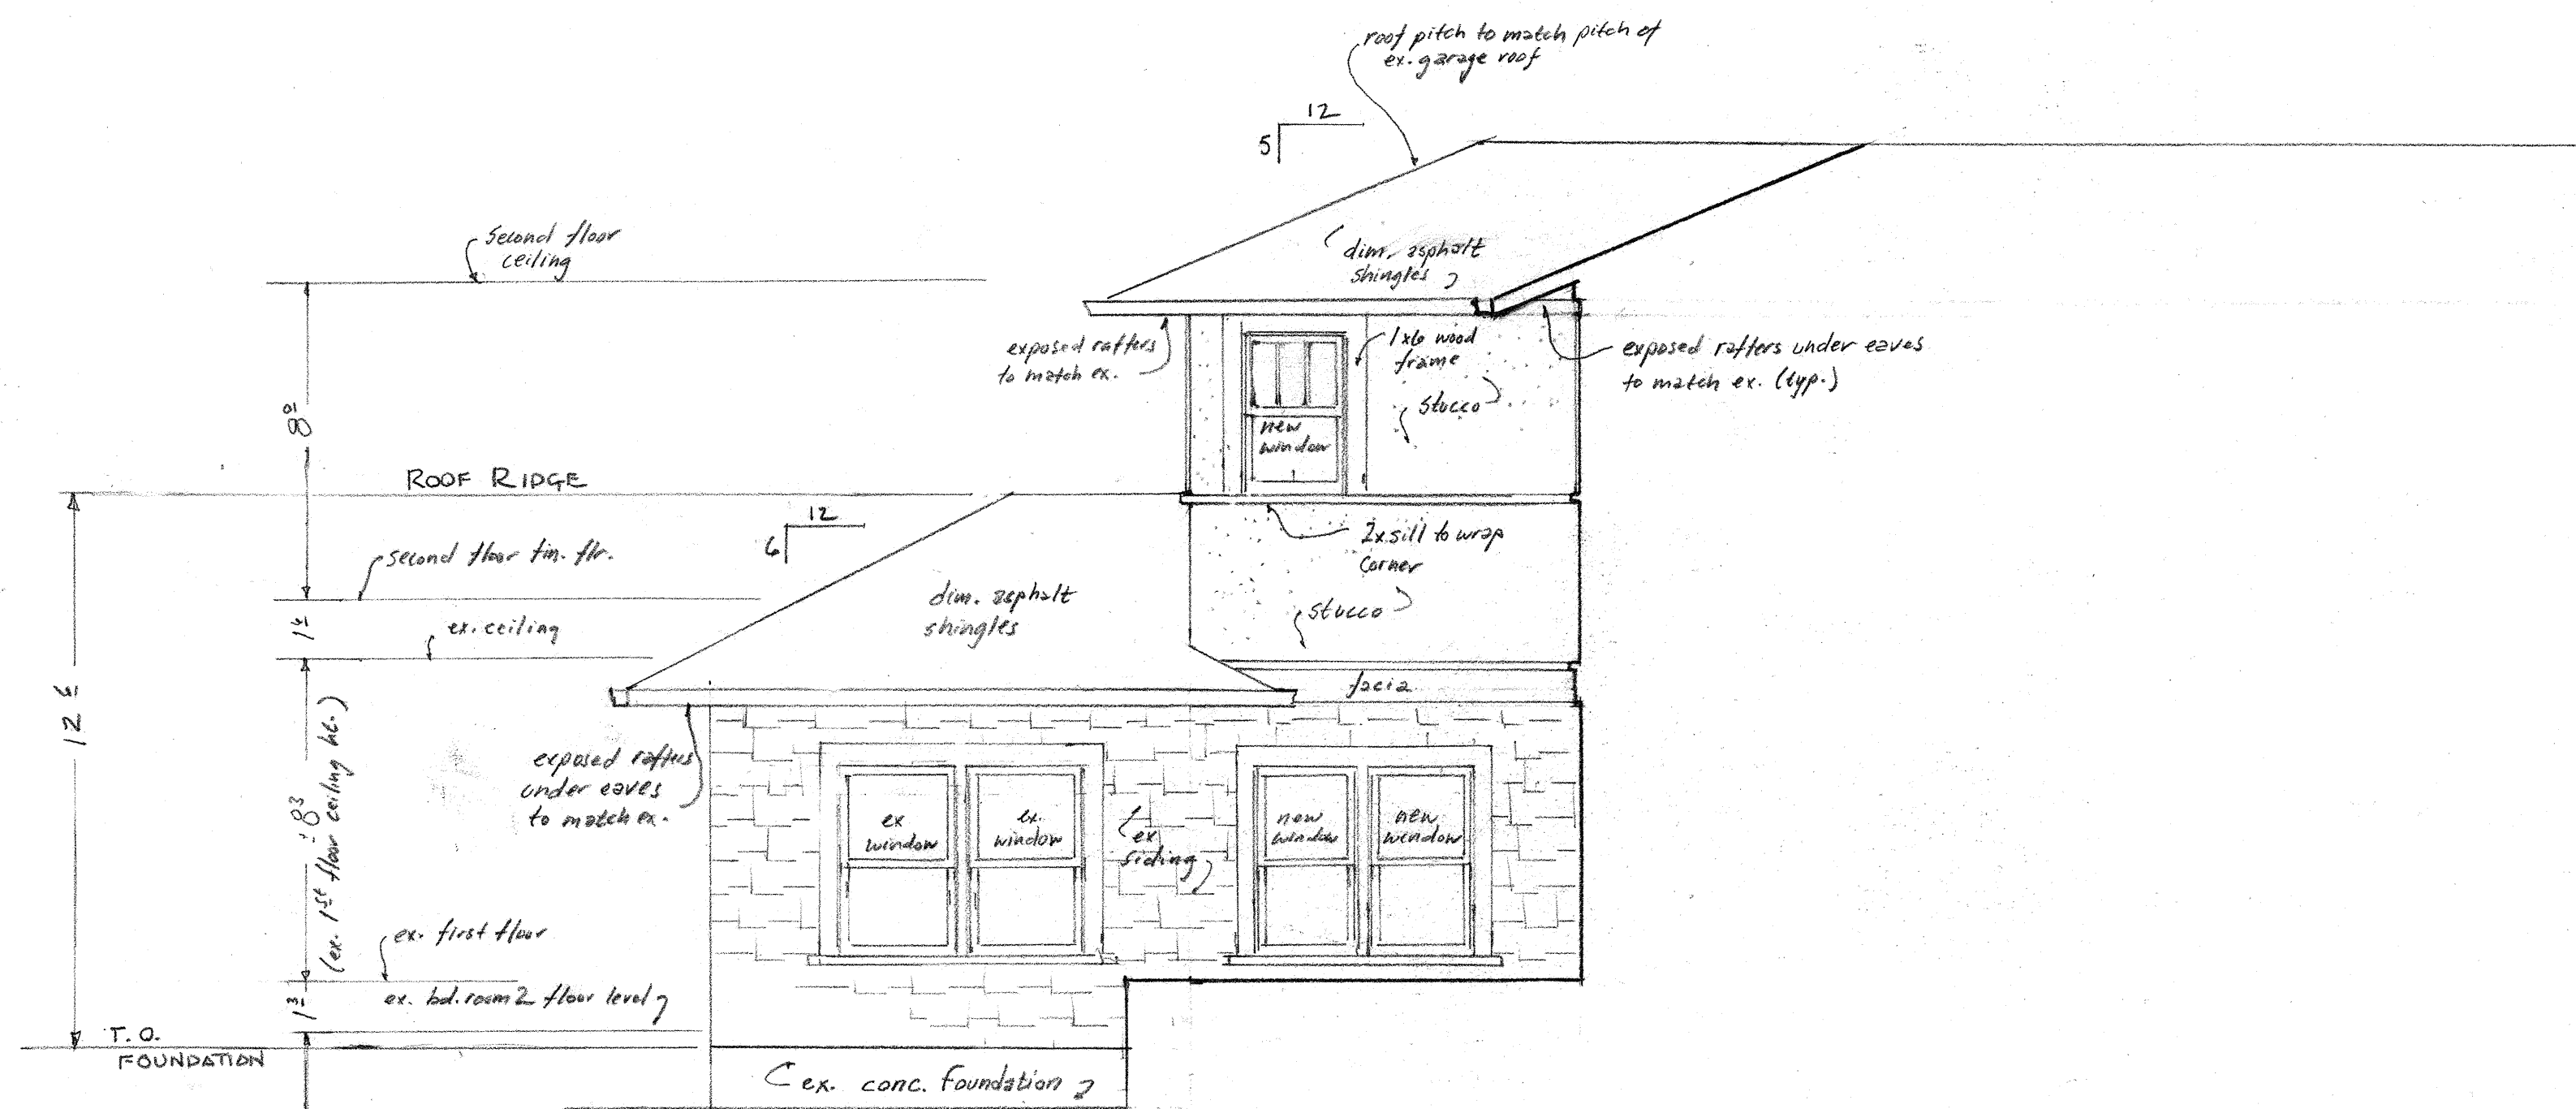 roof pitch to match pitch of
ex. garage roof
12
5
second floor
ceiling
dim. asphalt
shingles
exposed rafters
to match ex.
1x6 wood
frame
exposed rafters under eaves
to match ex. (typ.)
stucco
new
window
8⁰
ROOF RIDGE
12
6
2x sill to wrap
corner
second floor fin. flr.
dim. asphalt
shingles
stucco
ex. ceiling
1⁶
facia
12 6
exposed rafters
under eaves
to match ex.
ex
window
ex.
window
ex
siding
new
window
new
window
± 8³
(ex. 1st floor ceiling ht.)
ex. first floor
ex. bd. room 2 floor level
1³
T.O.
FOUNDATION
ex. conc. foundation